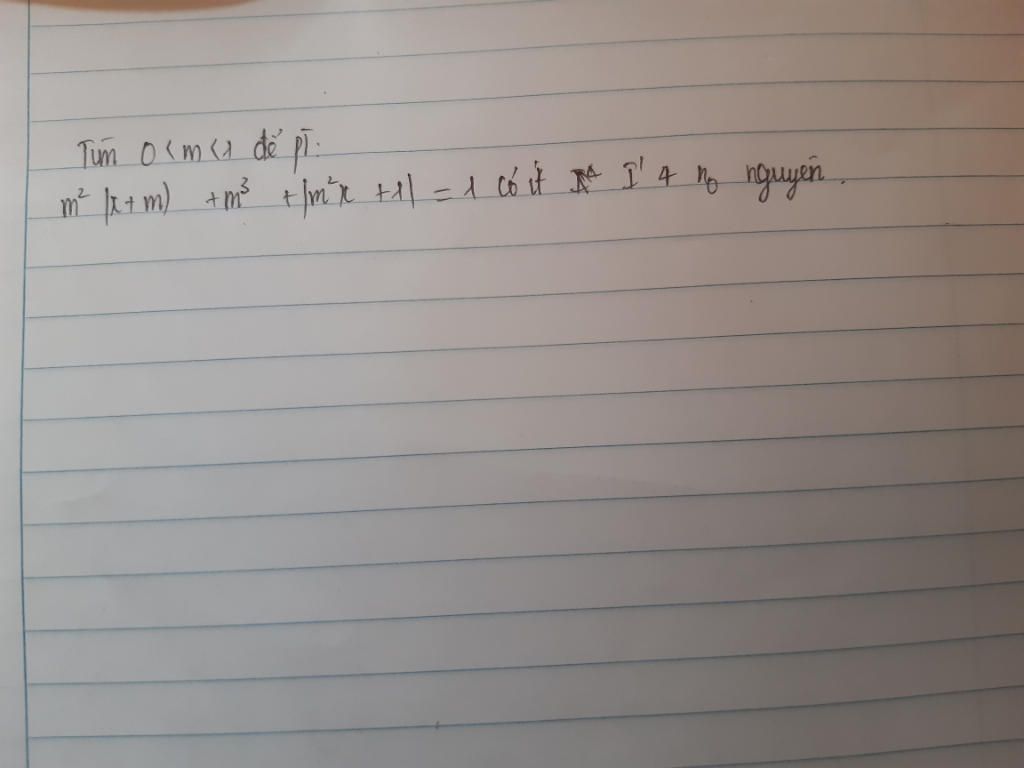 Tìm 0 < m < 1 để pt:
m² |x + m| + m³ + |m²x + 1| = 1 có ít I' 4 n₀ nguyên.